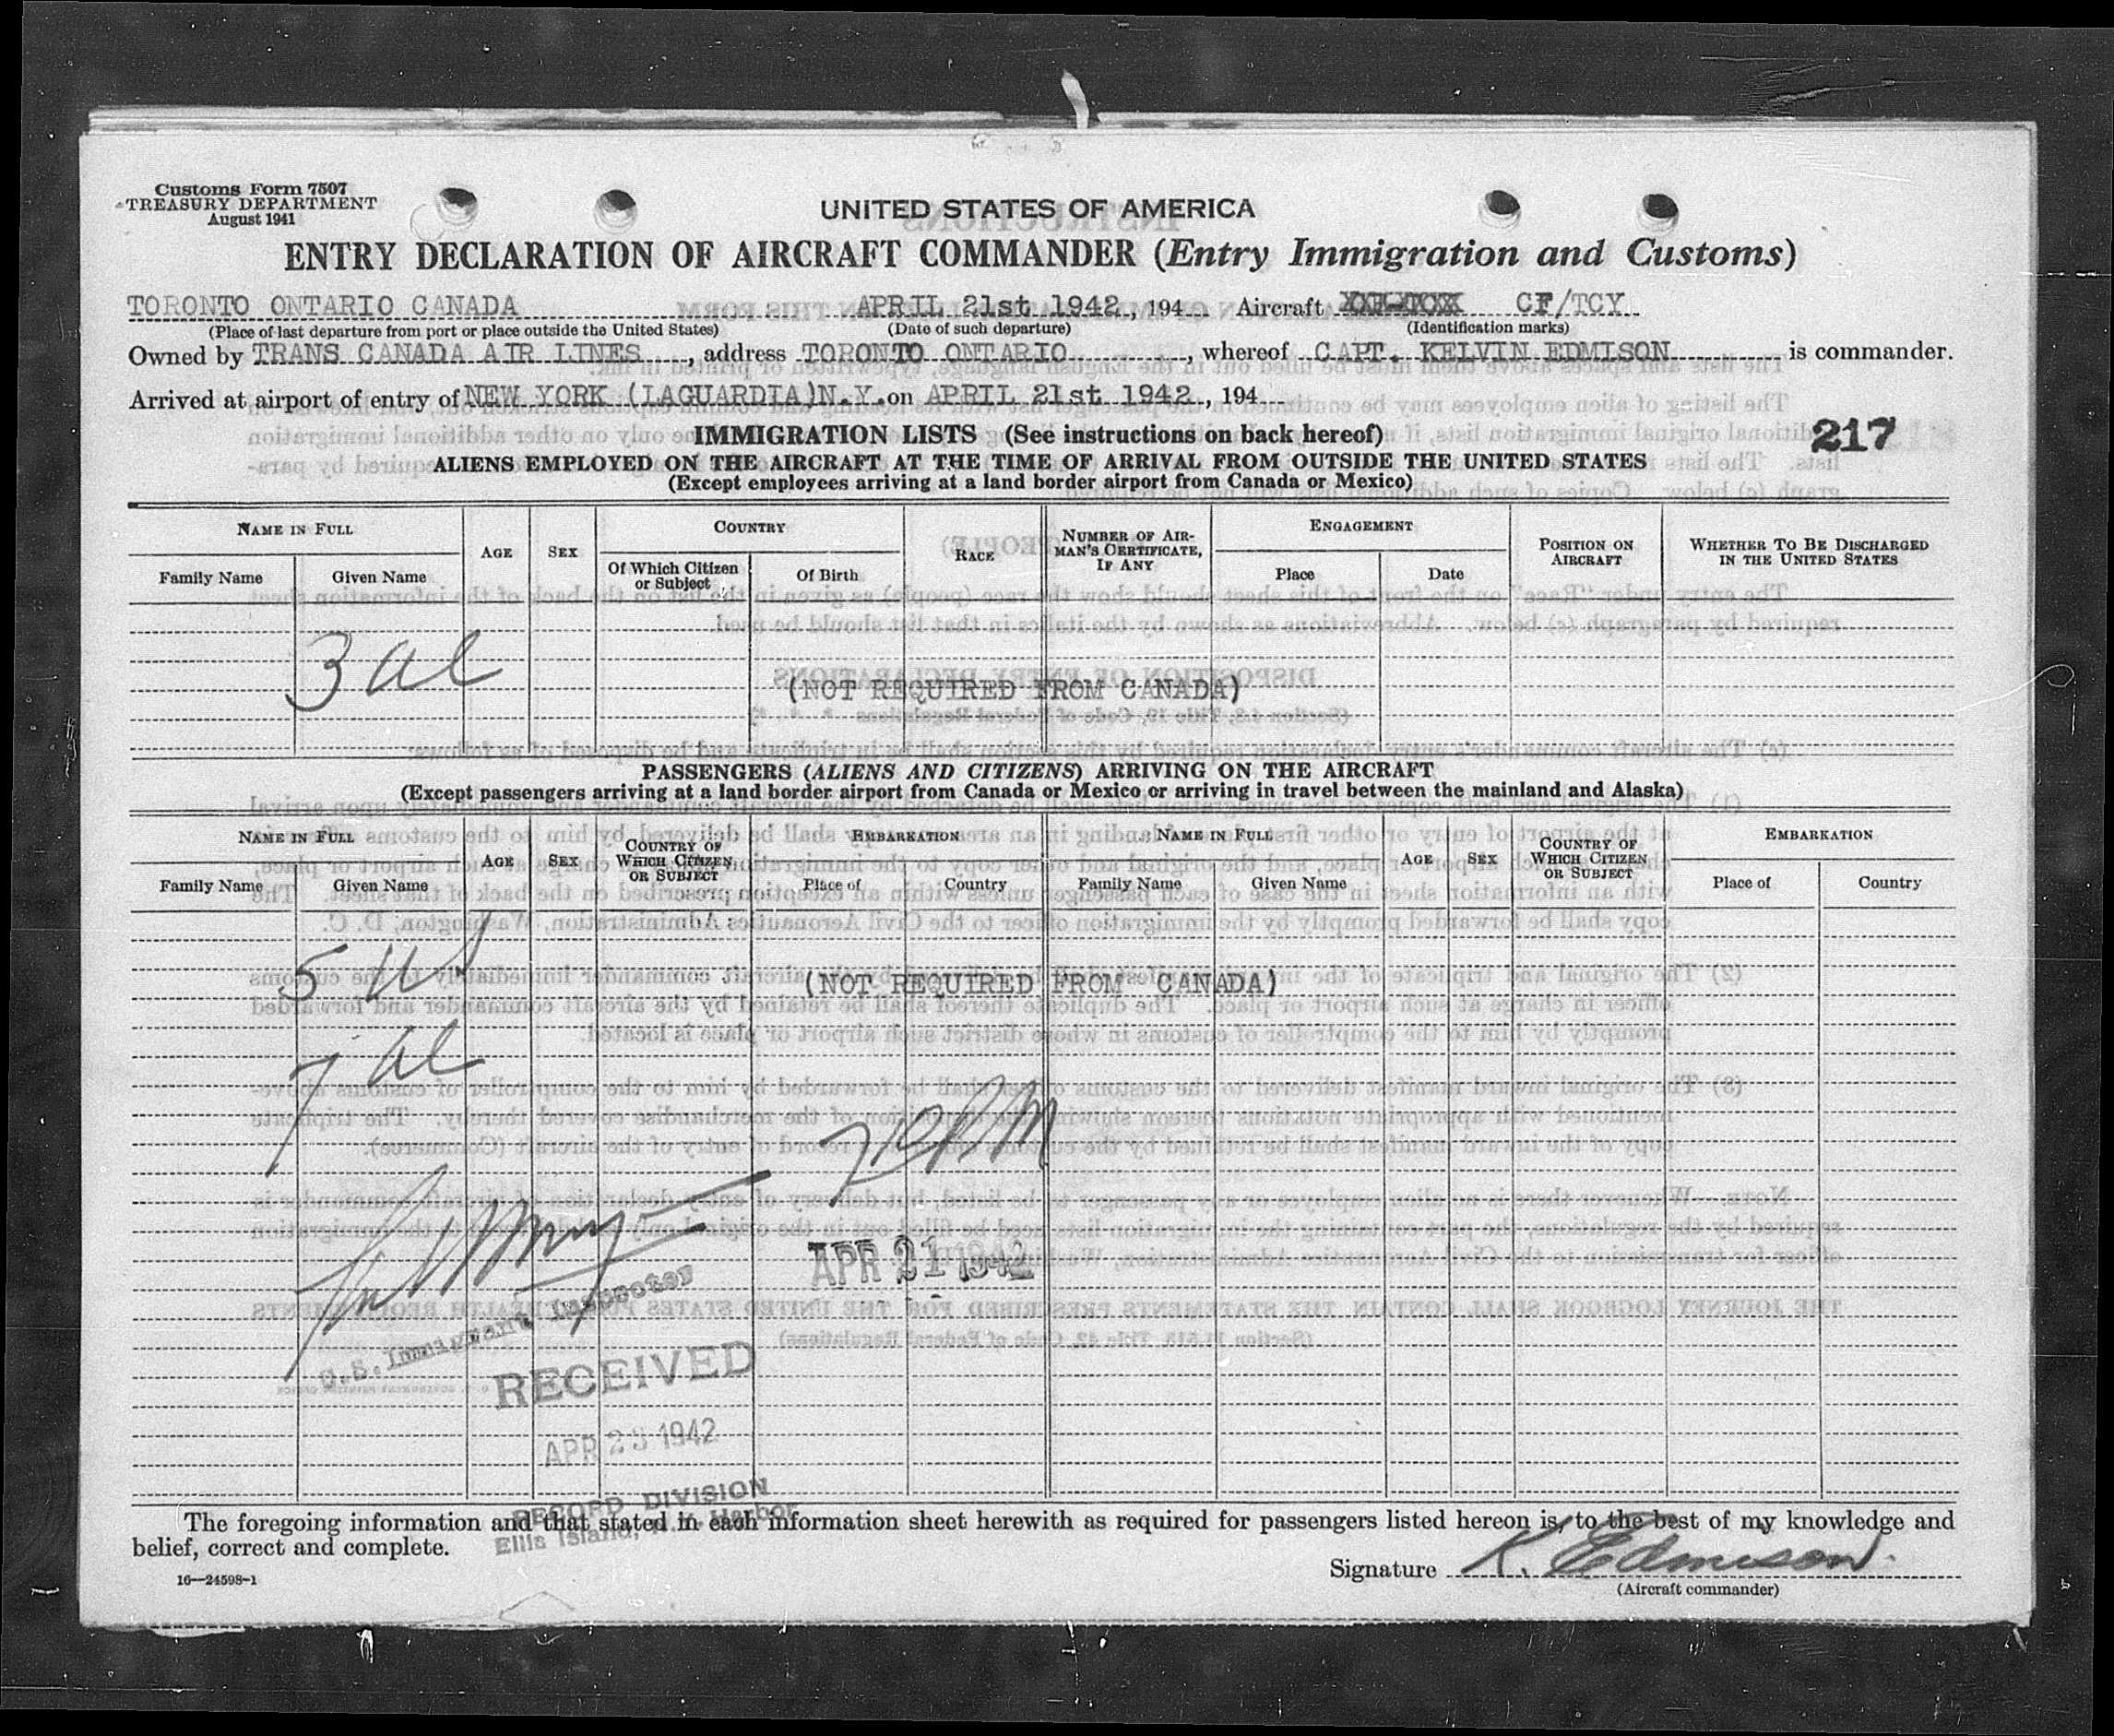 Customs Form 7507
TREASURY DEPARTMENT
August 1941
UNITED STATES OF AMERICA
ENTRY DECLARATION OF AIRCRAFT COMMANDER (Entry Immigration and Customs)
TORONTO ONTARIO CANADA APRIL 21st 1942, 194 Aircraft CF/TCY
(Place of last departure from port or place outside the United States) (Date of such departure) (Identification marks)
Owned by TRANS CANADA AIR LINES, address TORONTO ONTARIO, whereof CAPT. KELVIN EDMISON is commander.
Arrived at airport of entry of NEW YORK (LAGUARDIA)N.Y. on APRIL 21st 1942, 194
IMMIGRATION LISTS (See instructions on back hereof)
217
ALIENS EMPLOYED ON THE AIRCRAFT AT THE TIME OF ARRIVAL FROM OUTSIDE THE UNITED STATES
(Except employees arriving at a land border airport from Canada or Mexico)
NAME IN FULL AGE SEX COUNTRY RACE NUMBER OF AIRMAN'S CERTIFICATE, IF ANY ENGAGEMENT POSITION ON AIRCRAFT WHETHER TO BE DISCHARGED IN THE UNITED STATES
Family Name Given Name Of Which Citizen or Subject Of Birth Place Date
3 al
(NOT REQUIRED FROM CANADA)
PASSENGERS (ALIENS AND CITIZENS) ARRIVING ON THE AIRCRAFT
(Except passengers arriving at a land border airport from Canada or Mexico or arriving in travel between the mainland and Alaska)
NAME IN FULL AGE SEX COUNTRY OF WHICH CITIZEN OR SUBJECT EMBARKATION NAME IN FULL AGE SEX COUNTRY OF WHICH CITIZEN OR SUBJECT EMBARKATION
Family Name Given Name Place of Country Family Name Given Name Place of Country
5 US
(NOT REQUIRED FROM CANADA)
7 al
APR 21 1942
U.S. Immigrant Inspector
RECEIVED
APR 23 1942
RECORD DIVISION
Ellis Island, N.Y. Harbor
The foregoing information and that stated in each information sheet herewith as required for passengers listed hereon is, to the best of my knowledge and
belief, correct and complete.
Signature K. Edmison.
16—24598-1
(Aircraft commander)